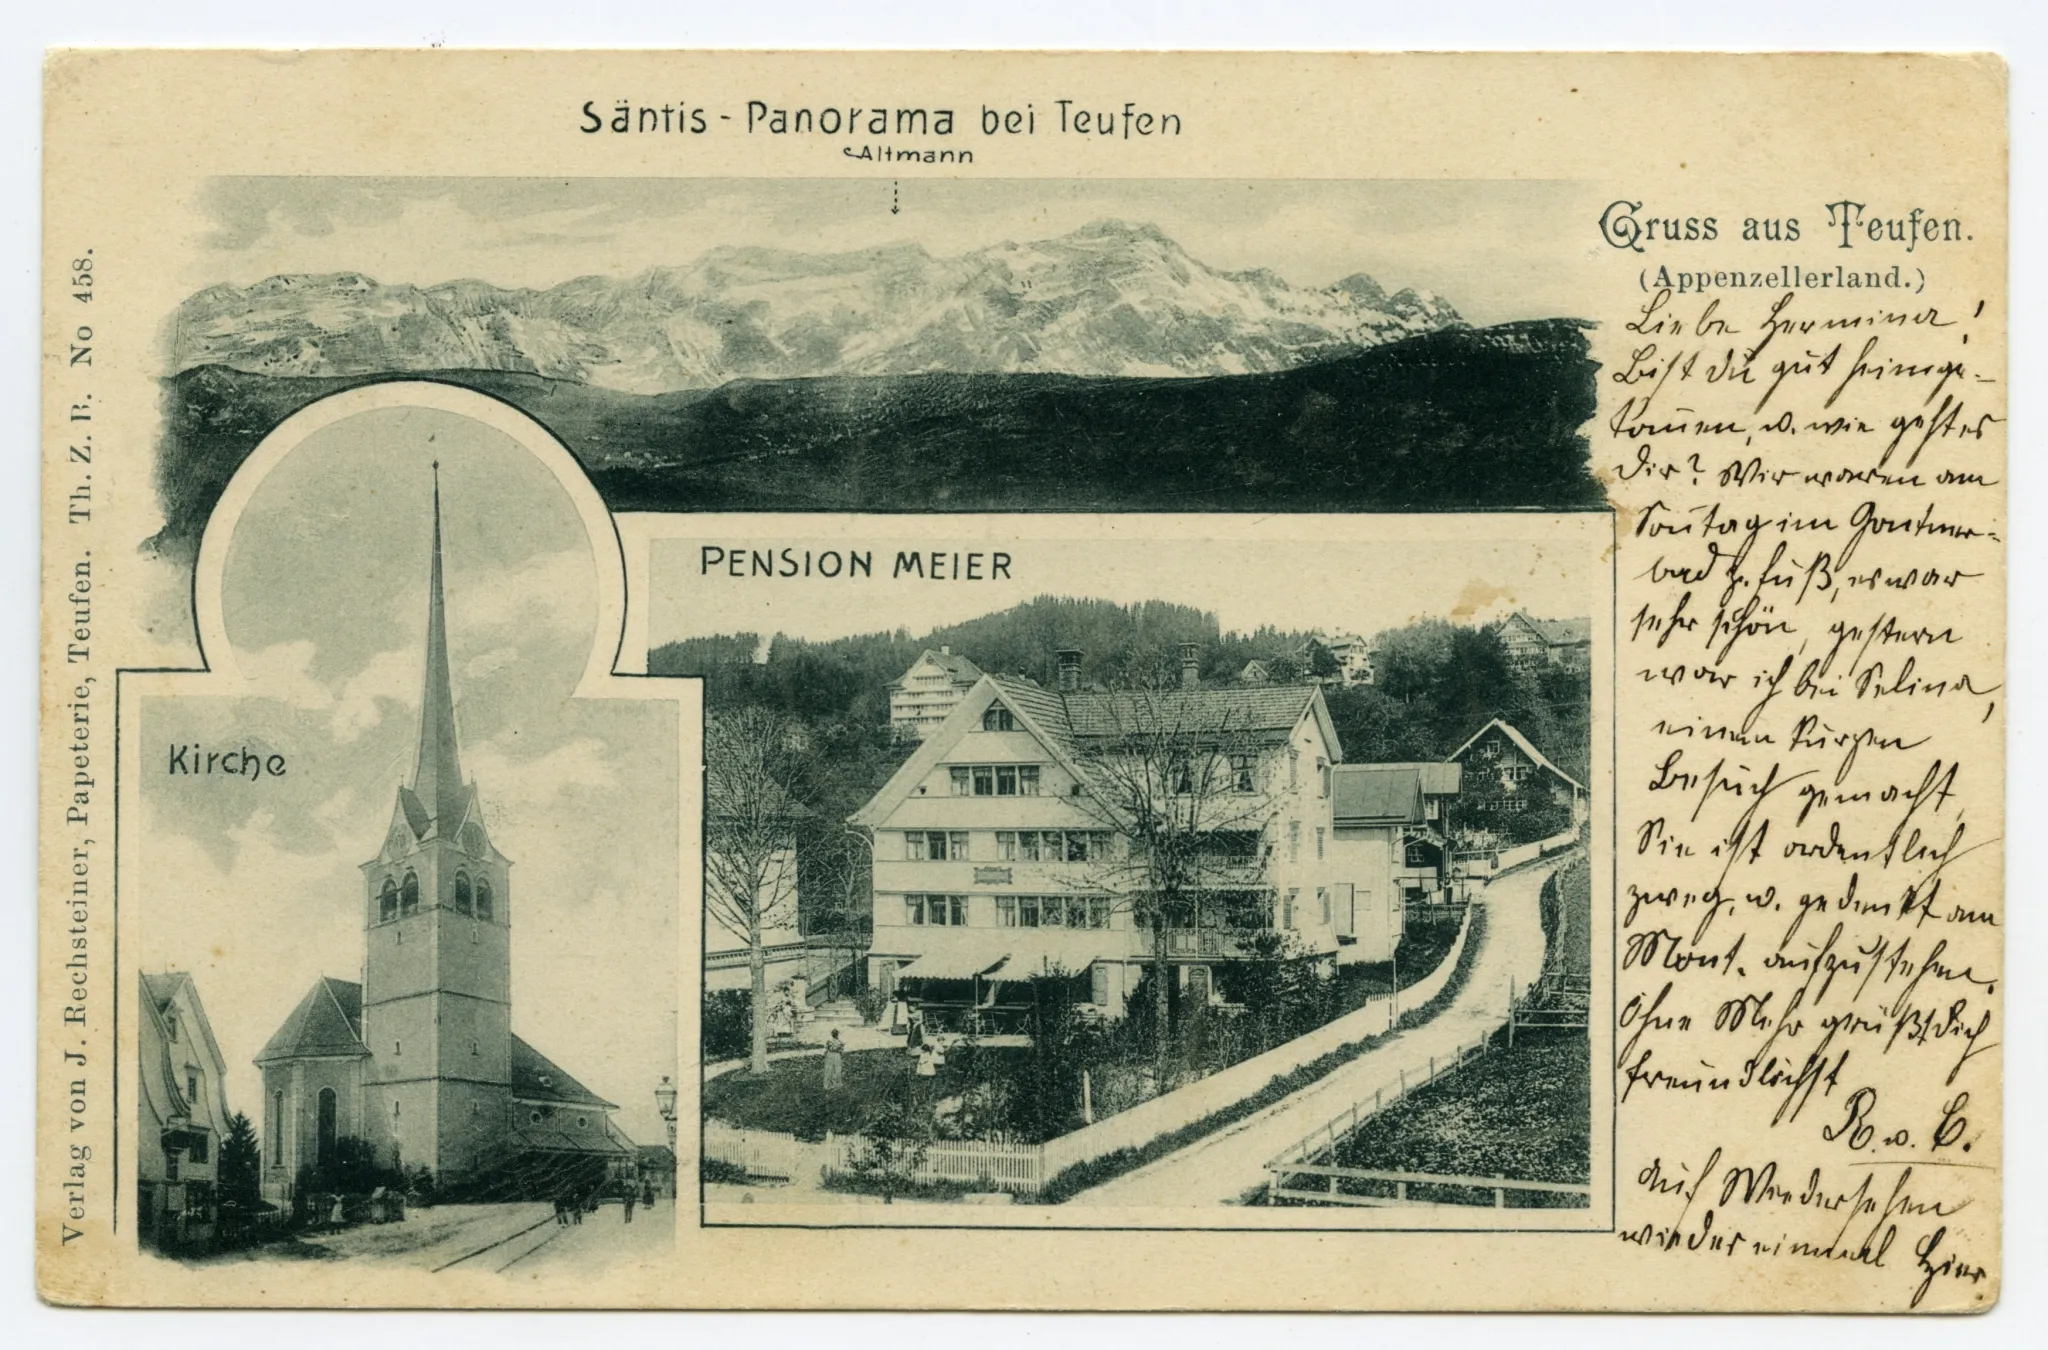 Säntis - Panorama bei Teufen
Altmann
Gruss aus Teufen.
(Appenzellerland.)
Liebe Hermina!
Bist Du gut heimge-
kom̄en, u. wie geht es
Dir? Wir waren am
Son̄tag im Gontner-
bad z. Fuß, es war
sehr schön, gestern
war ich bei Selina,
einen kurzen
Besuch gemacht,
Sie ist ordentlich
zweg, u. gedenkt am
Mont. aufzustehen.
Ohne Mehr grüßt Dich
freundlichst
R. u. C.
Auf Wiedersehen
wieder einmal hier
PENSION MEIER
Kirche
Verlag von J. Rechsteiner, Papeterie, Teufen. Th. Z. B. No 458.